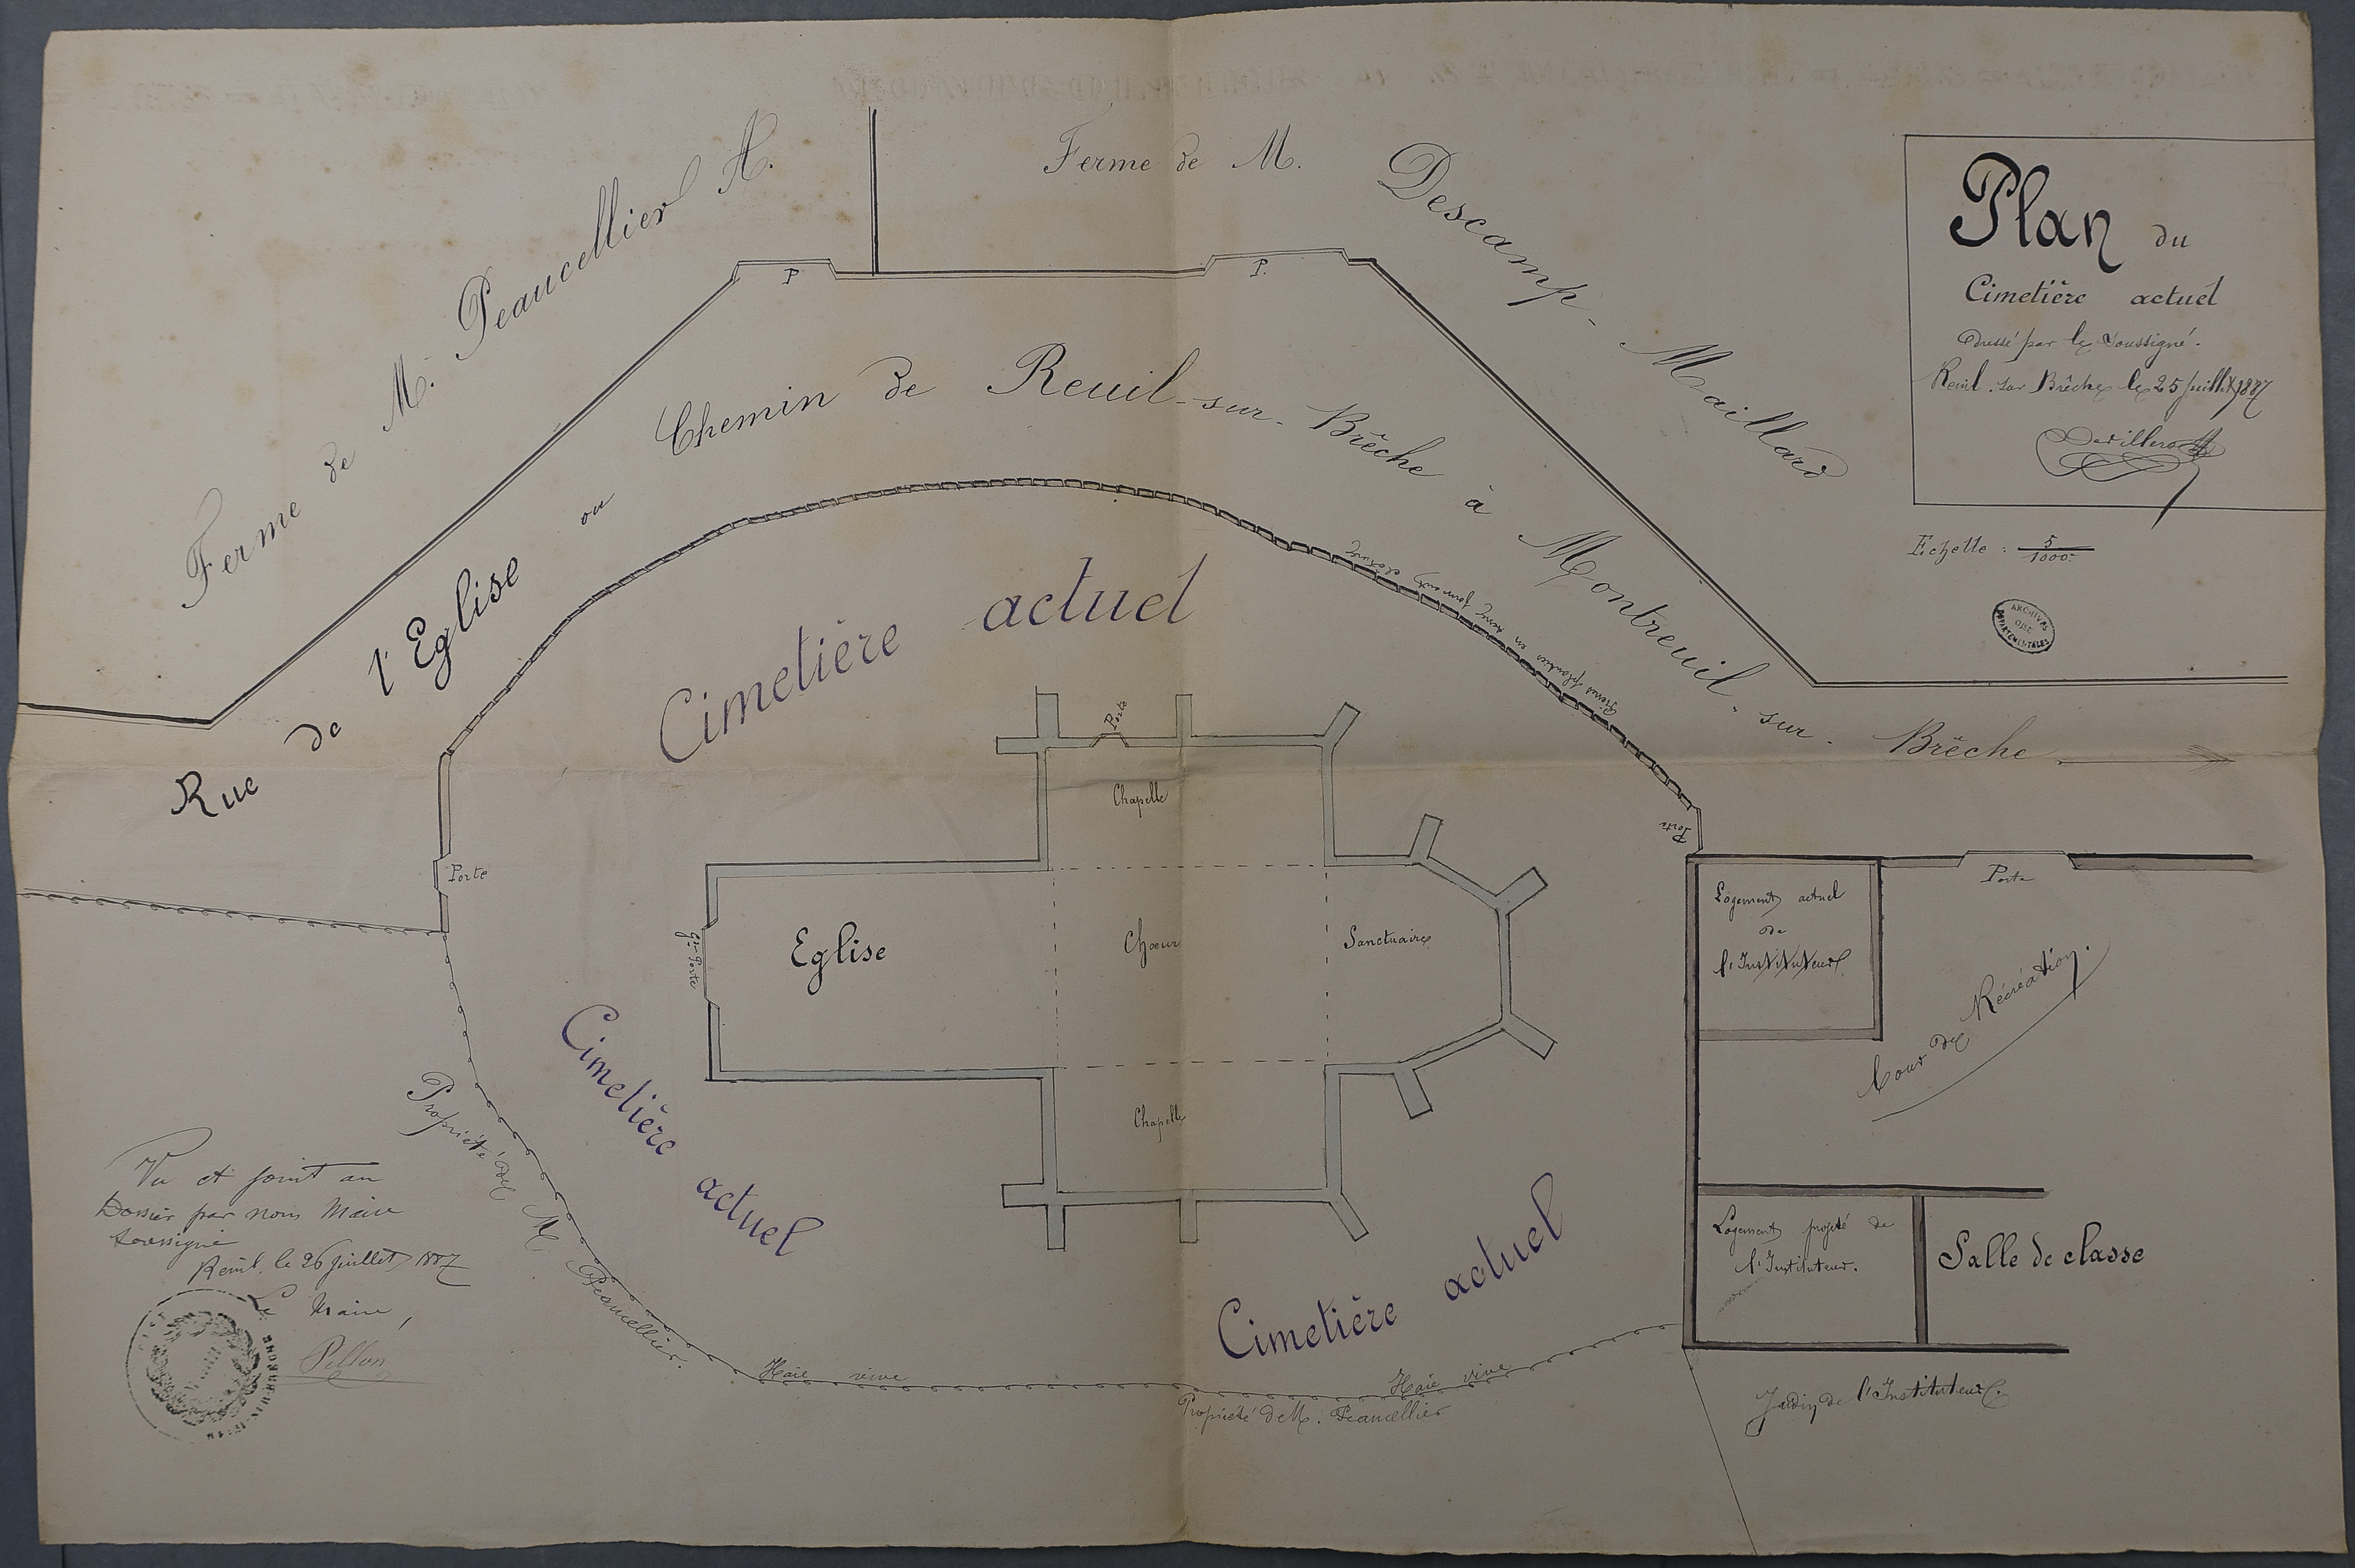 Plan du
Cimetière actuel
Dressé par le Soussigné.
Reuil-sur Brêche le 25 Juillet 1887
Echelle : 5/1000
ARCHIVES
OISE
DEPARTEMENTALES
Ferme de M. Peaucellier A.
Ferme de M. Descamp-Maillard
P
P.
Rue de l'Eglise ou Chemin de Reuil-sur-Brêche à Montreuil-sur-Brêche
Cimetière actuel
Pierres plantées en terre formant clôture
Porte
Porte
Porte
Porte
Chapelle
Eglise
Chœur
Sanctuaire
Gde Porte
Chapelle
Logement actuel
de
l'Instituteur
Cour de Récréation.
Logement projeté de
l'Instituteur.
Salle de classe
Jardin de l'Instituteur.
Cimetière actuel
Cimetière actuel
Propriété de M. Peaucellier.
Haie vive
Haie vive
Propriété de M. Peaucellier
Vu et joint au
Dossier par nous Maire
soussigné
Reuil, le 26 juillet 1887
Le Maire,
Pellon